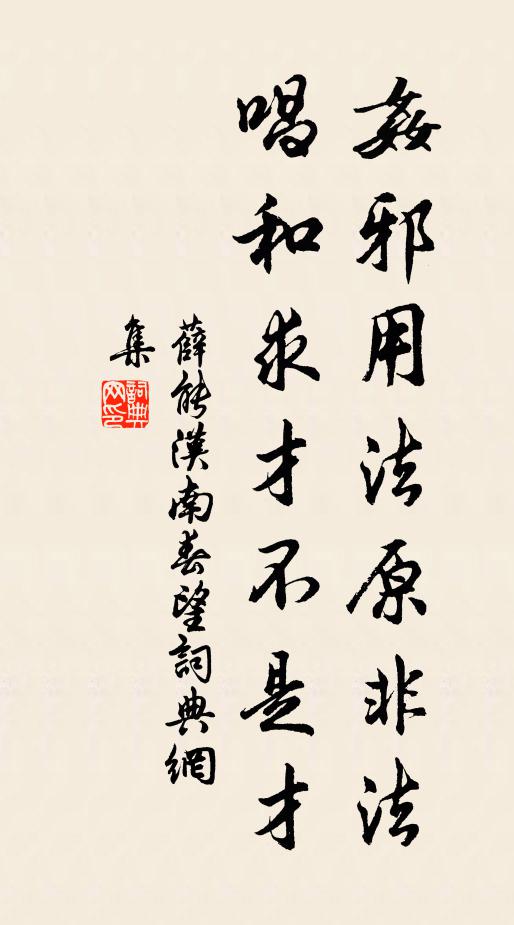 姦邪用法原非法
唱和求才不是才
薛能漢南春望詞典網
集
詞典網印